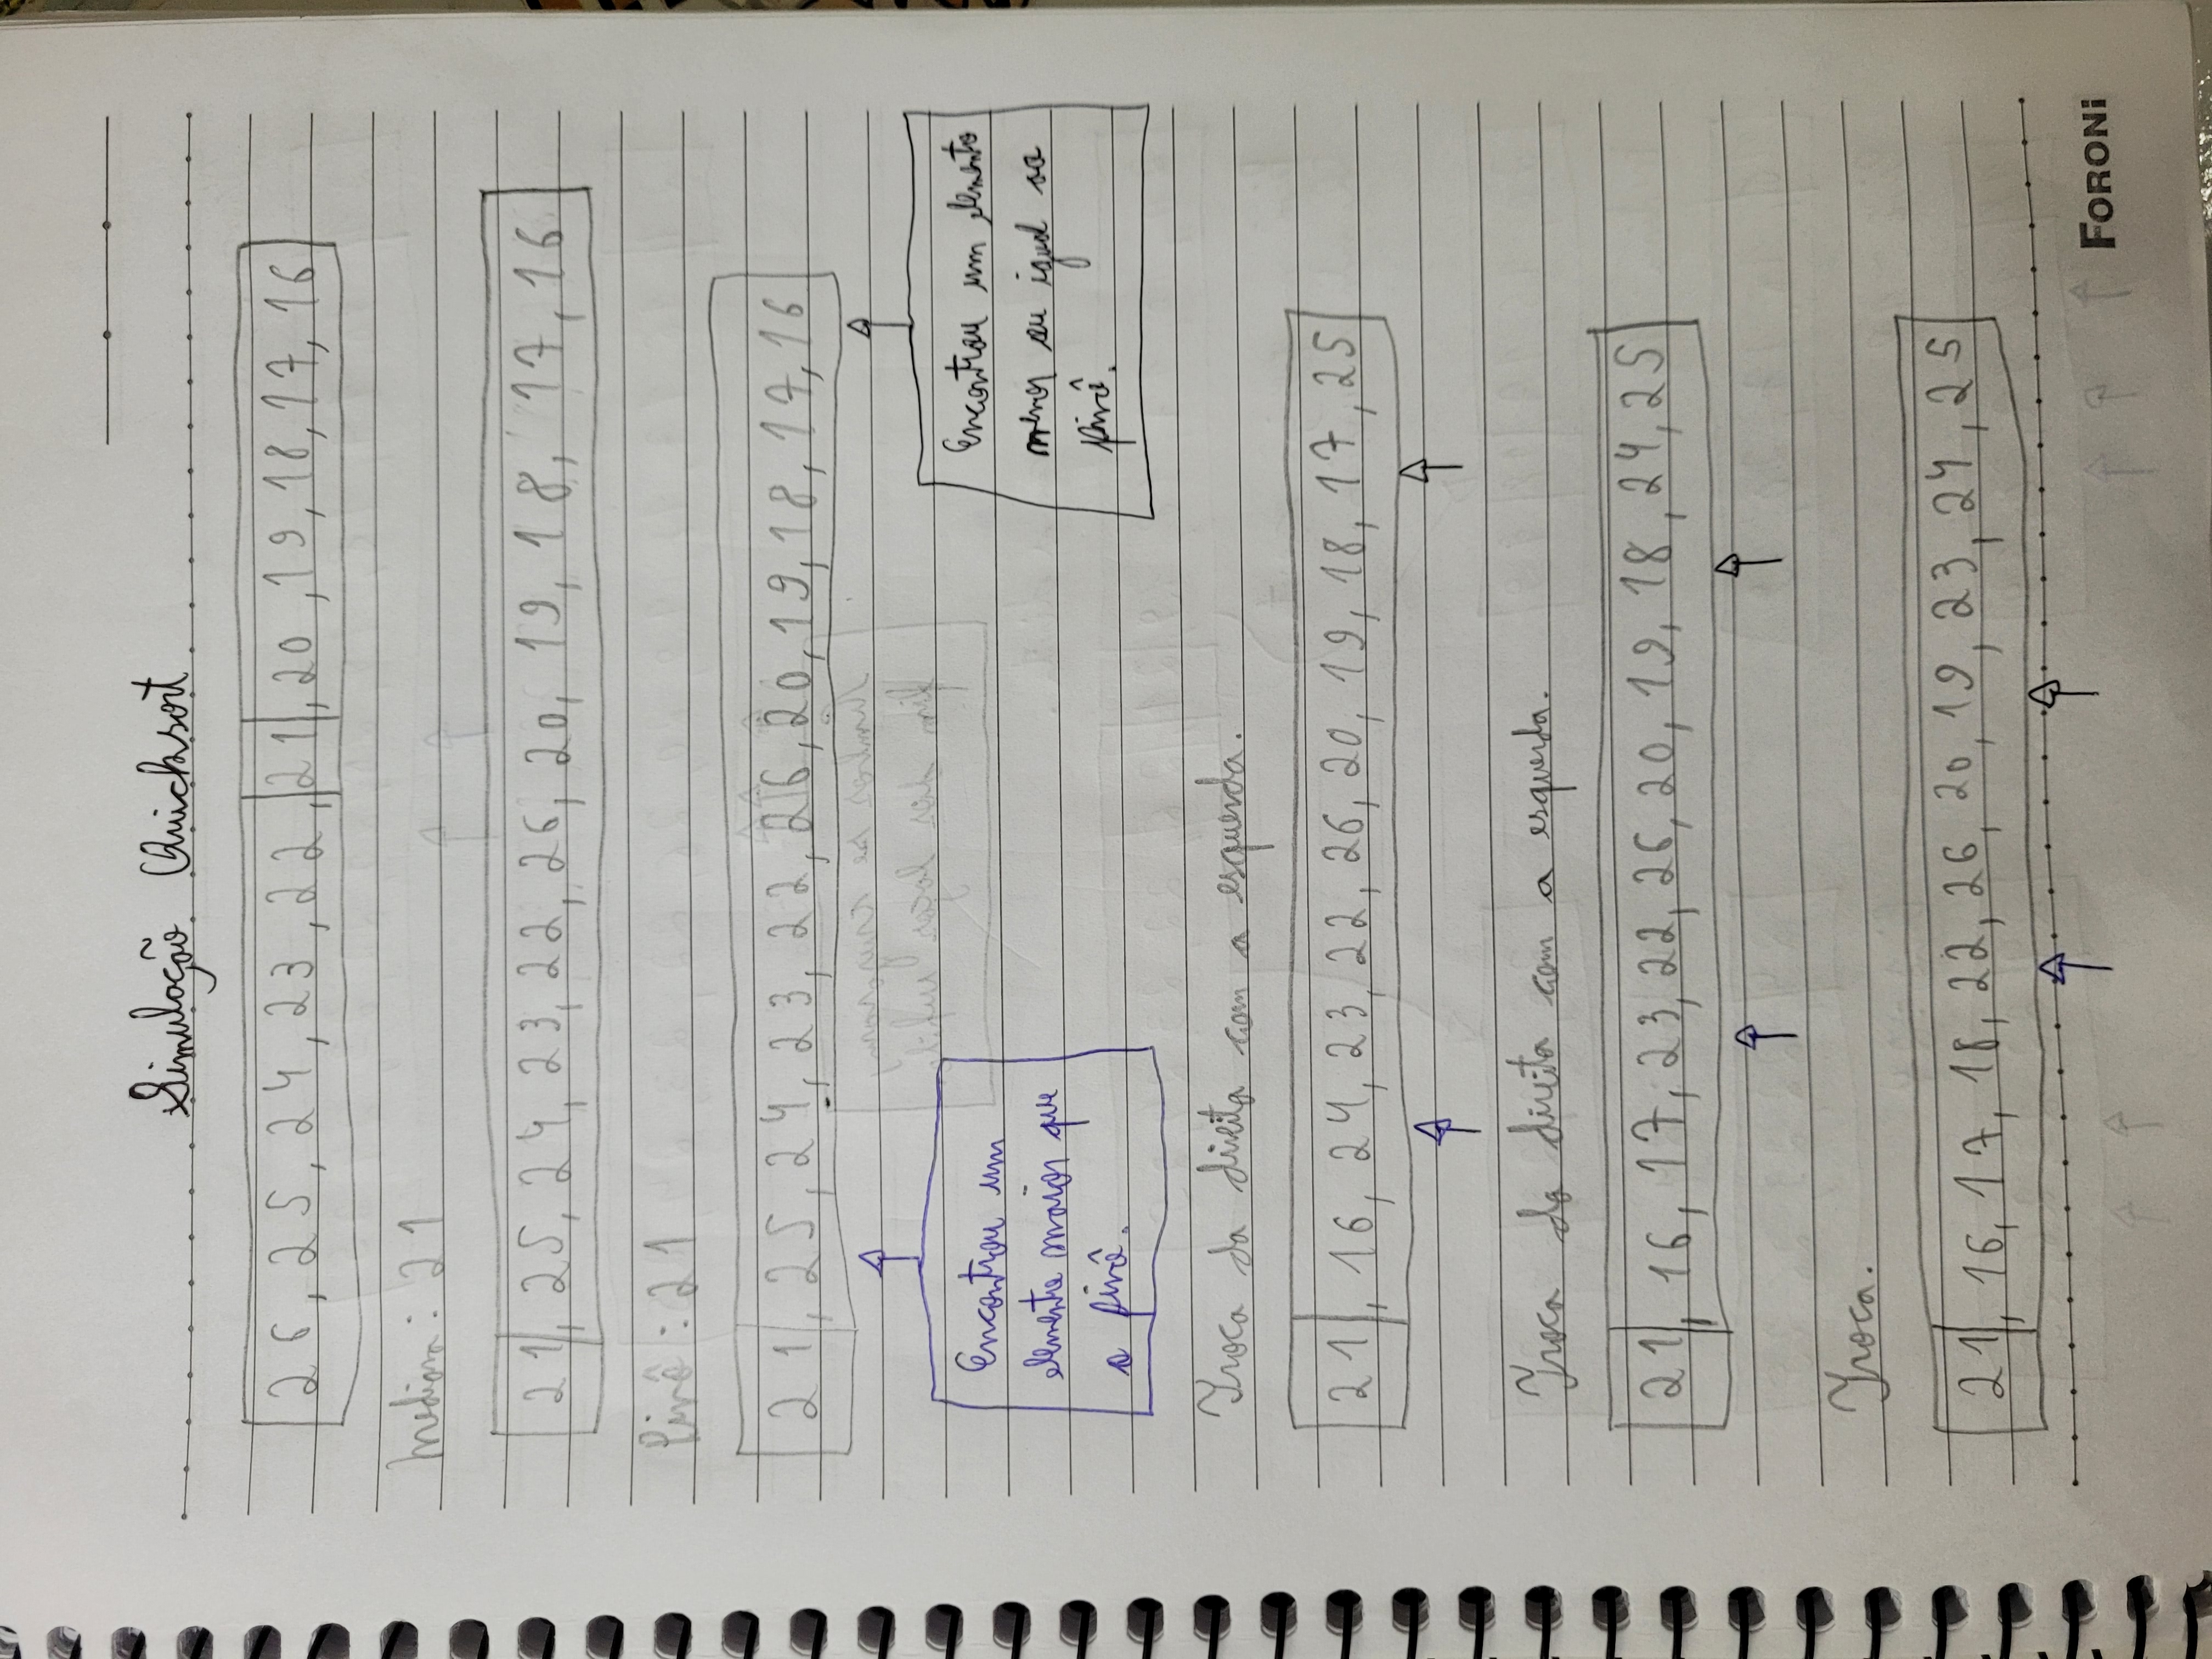 Simulação Quicksort
26, 25, 24, 23, 22, 21, 20, 19, 18, 17, 16
Mediana: 21
21, 25, 24, 23, 22, 26, 20, 19, 18, 17, 16
Pivô: 21
21, 25, 24, 23, 22, 26, 20, 19, 18, 17, 16
Encontrou um
elemento maior que
o pivô.
Encontrou um elemento
menor ou igual ao
pivô.
Troca da direita com a esquerda.
21, 16, 24, 23, 22, 26, 20, 19, 18, 17, 25
Troca da direita com a esquerda.
21, 16, 17, 23, 22, 26, 20, 19, 18, 24, 25
Troca.
21, 16, 17, 18, 22, 26, 20, 19, 23, 24, 25
FORONI